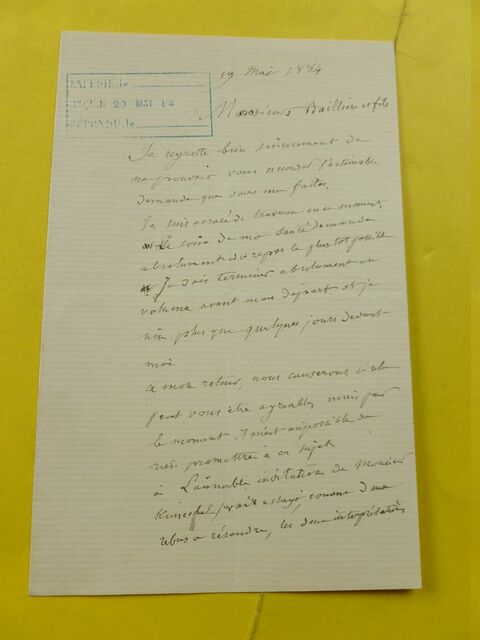 19 Mai 1884
EXPÉDIÉ le
REÇU le 20 MAI 84
RÉPONDU le
Messieurs Baillière et fils
Je regrette bien sincèrement de
ne pouvoir vous accorder l'estimable
demande que vous me faites.
Je suis écrasé de travaux en ce moment
Le soin de ma santé demande
absolument du repos le plus tot possible
Je dois terminer absolument un
volume avant mon départ et je
n'ai plus que quelques jours devant
moi.
a mon retour, nous causerons si cela
peut vous être agréable, mais pour
le moment il m'est impossible de
rien promettre à ce sujet.
à L'aimable invitation de Monsieur
j'avais essayé, comme deux
rebus a résoudre, les deux interprétations